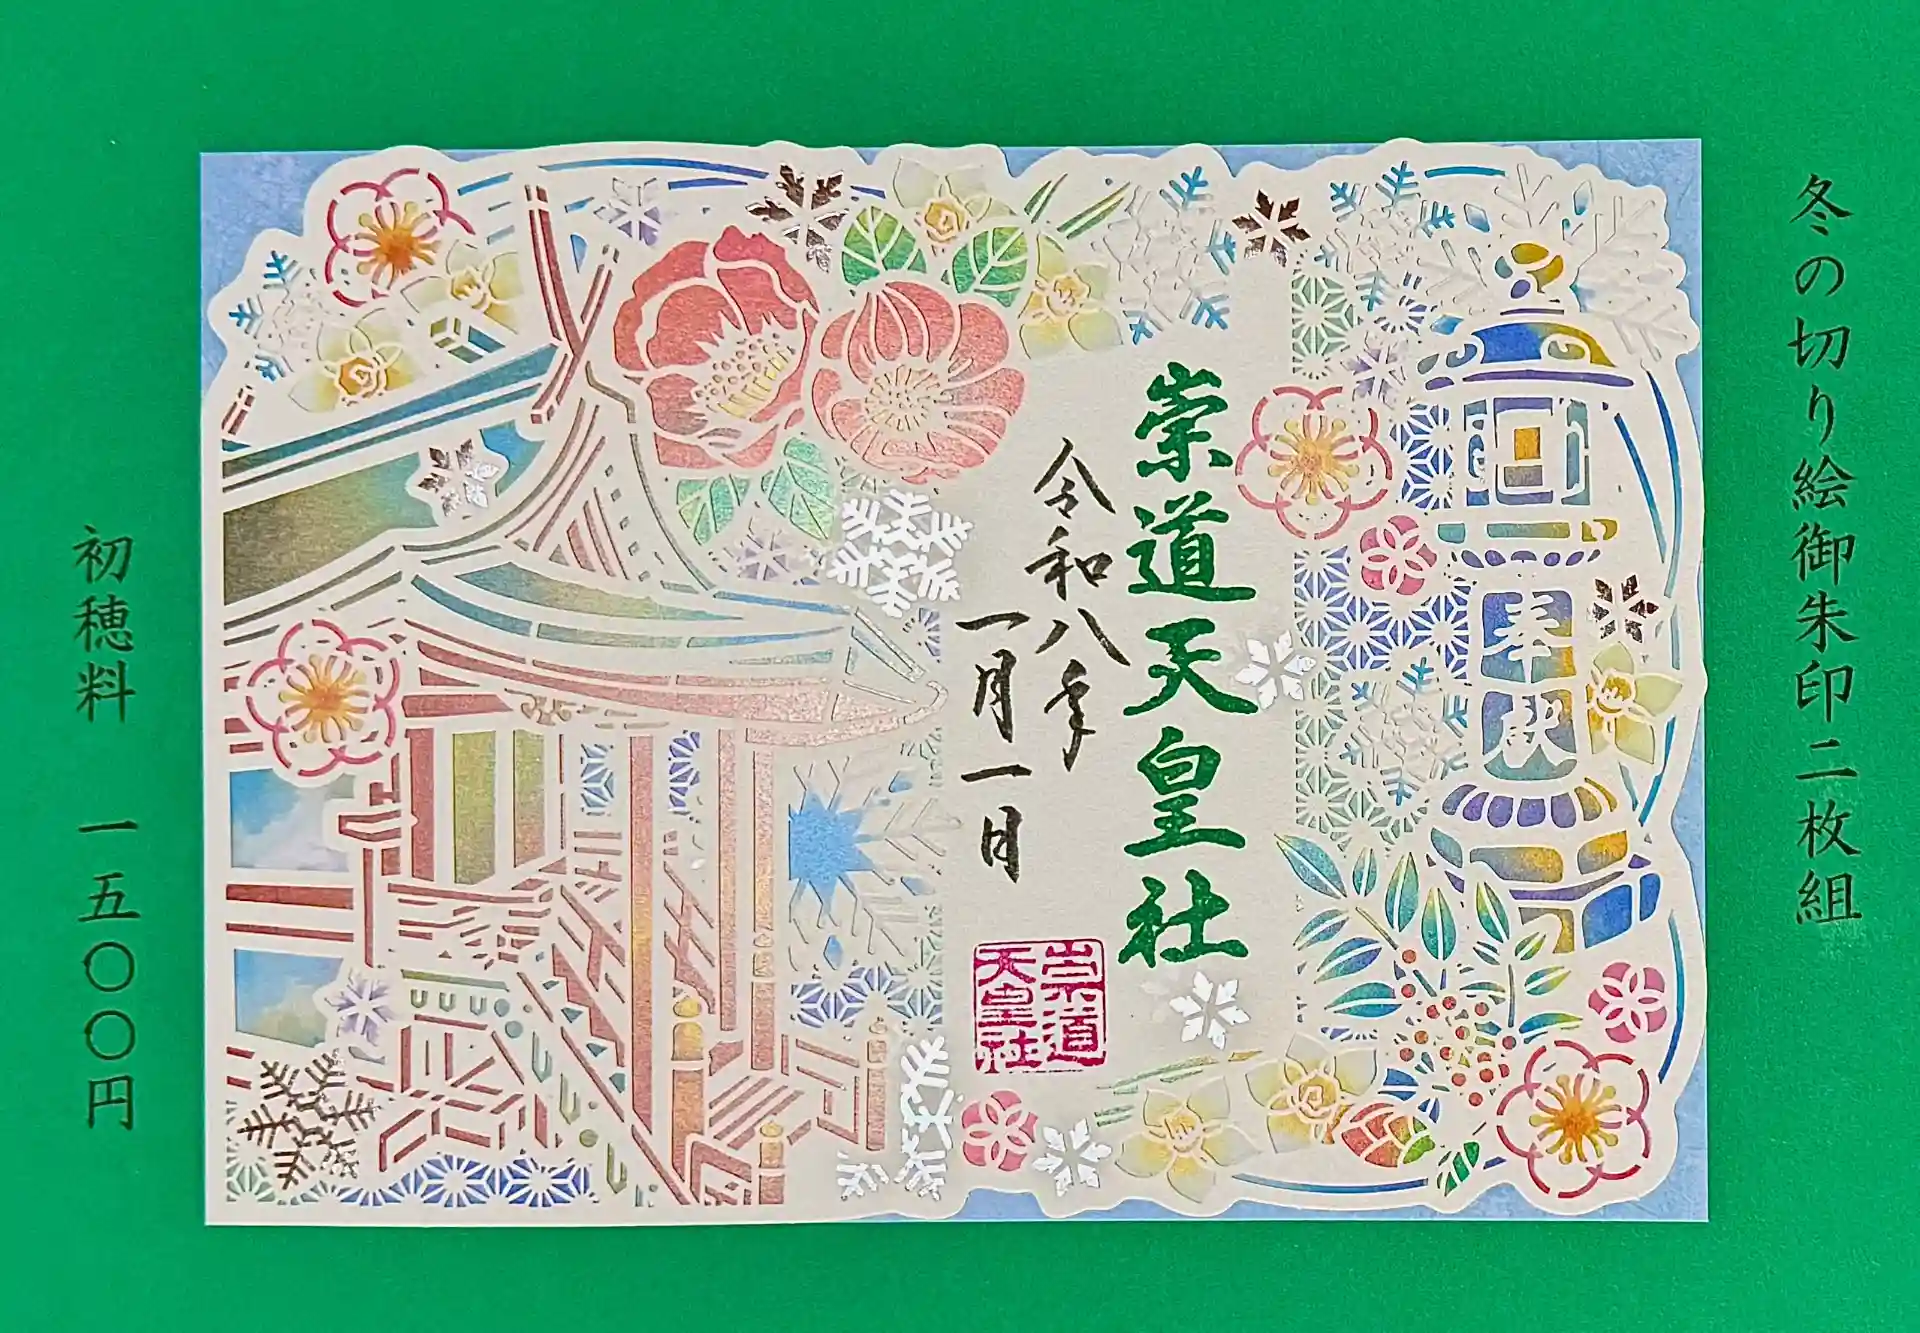 冬の切り絵御朱印二枚組
奉献
崇道天皇社
令和八年
一月一日
崇道
天皇社
初穂料 一五〇〇円